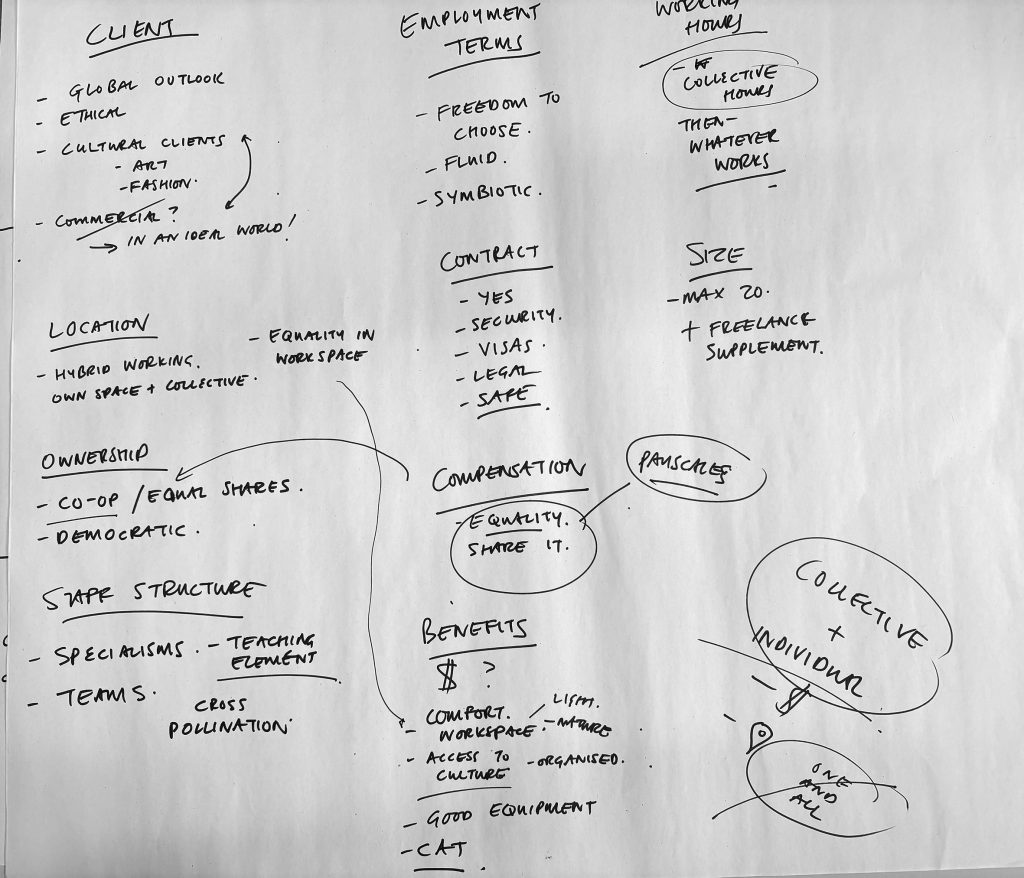 CLIENT
- GLOBAL OUTLOOK
- ETHICAL
- CULTURAL CLIENTS
- ART
- FASHION.
- COMMERCIAL?
→ IN AN IDEAL WORLD!
LOCATION
- HYBRID WORKING.
OWN SPACE + COLLECTIVE.
- EQUALITY IN
WORKSPACE
OWNERSHIP
- CO-OP / EQUAL SHARES.
- DEMOCRATIC.
STAFF STRUCTURE
- SPECIALISMS.
- TEACHING
ELEMENT
- TEAMS.
CROSS
POLLINATION.
EMPLOYMENT
TERMS
- FREEDOM TO
CHOOSE.
- FLUID.
- SYMBIOTIC.
CONTRACT
- YES
- SECURITY.
- VISAS.
- LEGAL
- SAFE.
COMPENSATION
- EQUALITY.
SHARE IT.
PAYSCALES
BENEFITS
$ ?
- COMFORT.
WORKSPACE
- NATURE
- ACCESS TO
CULTURE
- ORGANISED.
- GOOD EQUIPMENT
- CAT.
WORKING
HOURS
- COLLECTIVE
HOURS
THEN-
WHATEVER
WORKS
SIZE
- MAX 20.
+ FREELANCE
SUPPLEMENT.
COLLECTIVE
+
INDIVIDUAL
- $
-
ONE
AND
ALL